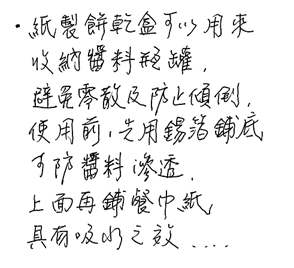 ·紙製餅乾盒可以用來
收納醬料瓶罐，
避免零散及防止傾倒，
使用前，先用錫箔鋪底
可防醬料滲透，
上面再鋪餐巾紙
具有吸水之效....